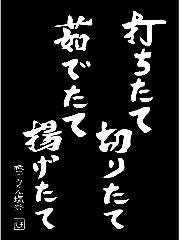 打ちたて
切りたて
茹でたて
揚げたて